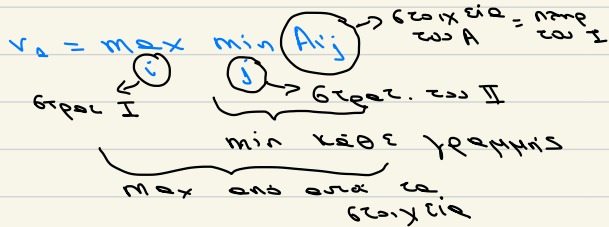 v₁ = max min Aij → στοιχεία του A = πληρ του I
i j
στρατ I στρατ. του II
min κάθε γραμμής
max από αυτά τα
στοιχεία